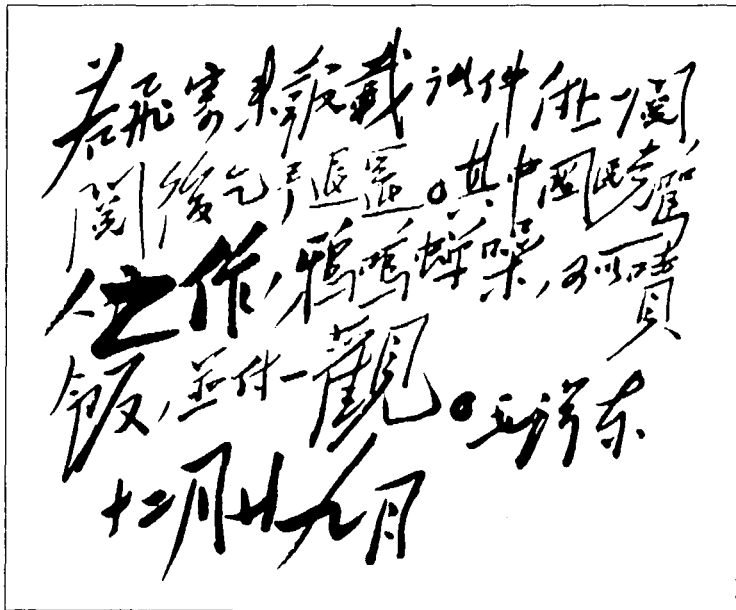 若飛寄来報載诸件付上一閱,
閱後乞予退還。其中國民党駡
人之作,鴉鳴蟬噪,可以噴
飯,並付一觀。毛泽东
十二月廿九日